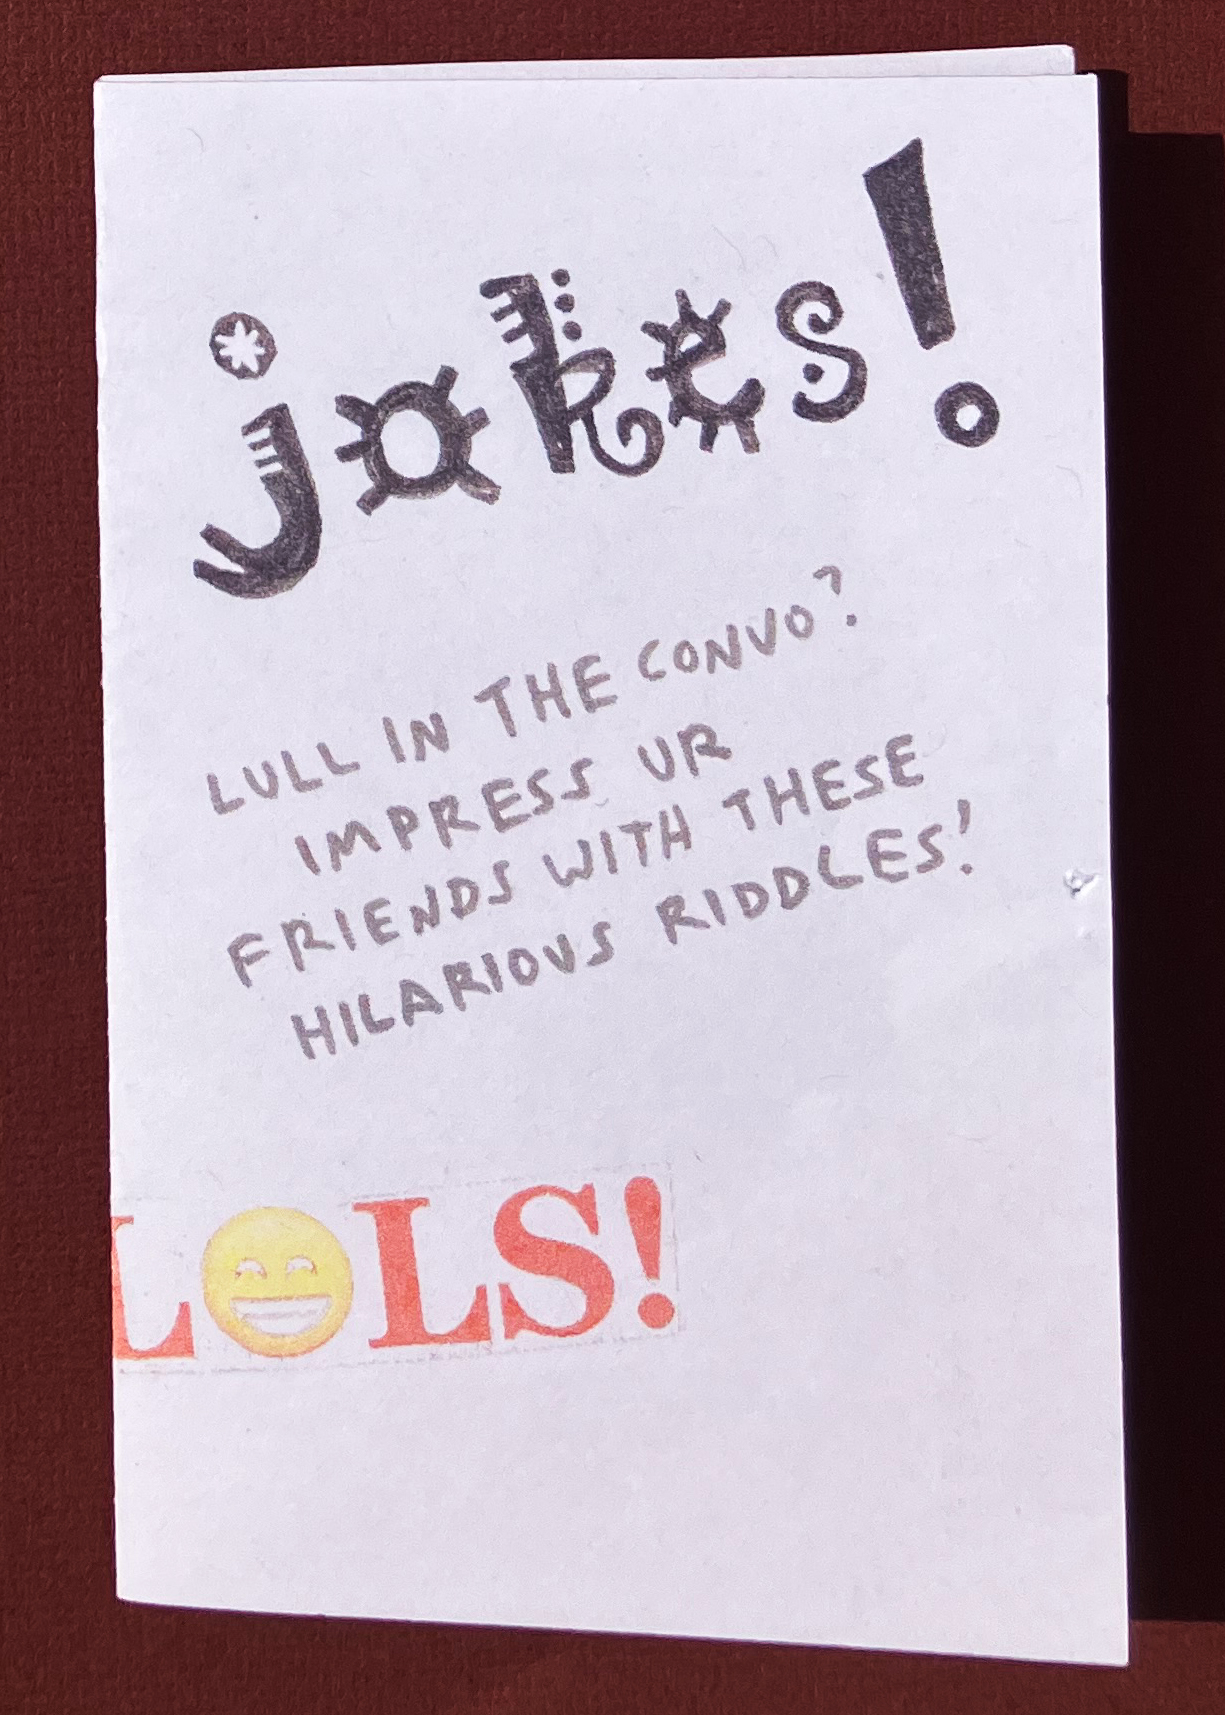 jokes!
LULL IN THE CONVO?
IMPRESS UR
FRIENDS WITH THESE
HILARIOUS RIDDLES!
L😁LS!